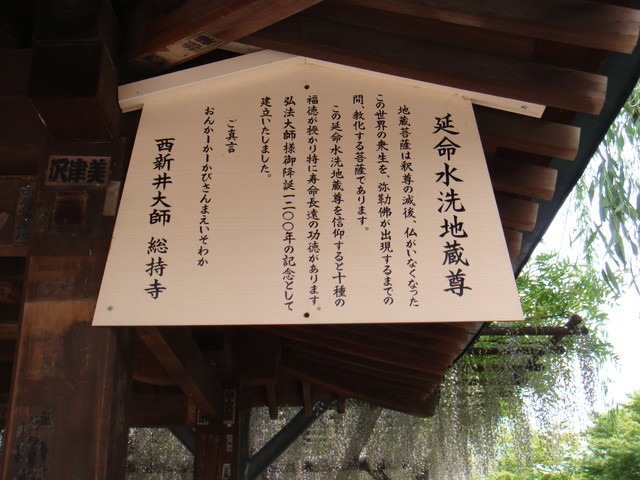 延命水洗地蔵尊
地蔵菩薩は釈尊の滅後、仏がいなくなった
この世界の衆生を、弥勒佛が出現するまでの
間、教化する菩薩であります。
この延命水洗地蔵尊を信仰すると十種の
福徳が授かり特に寿命長遠の功徳があります。
弘法大師様御降誕一二〇〇年の記念として
建立いたしました。
ご真言
おんかーかーかびさんまえいそわか
西新井大師 総持寺
沢津美